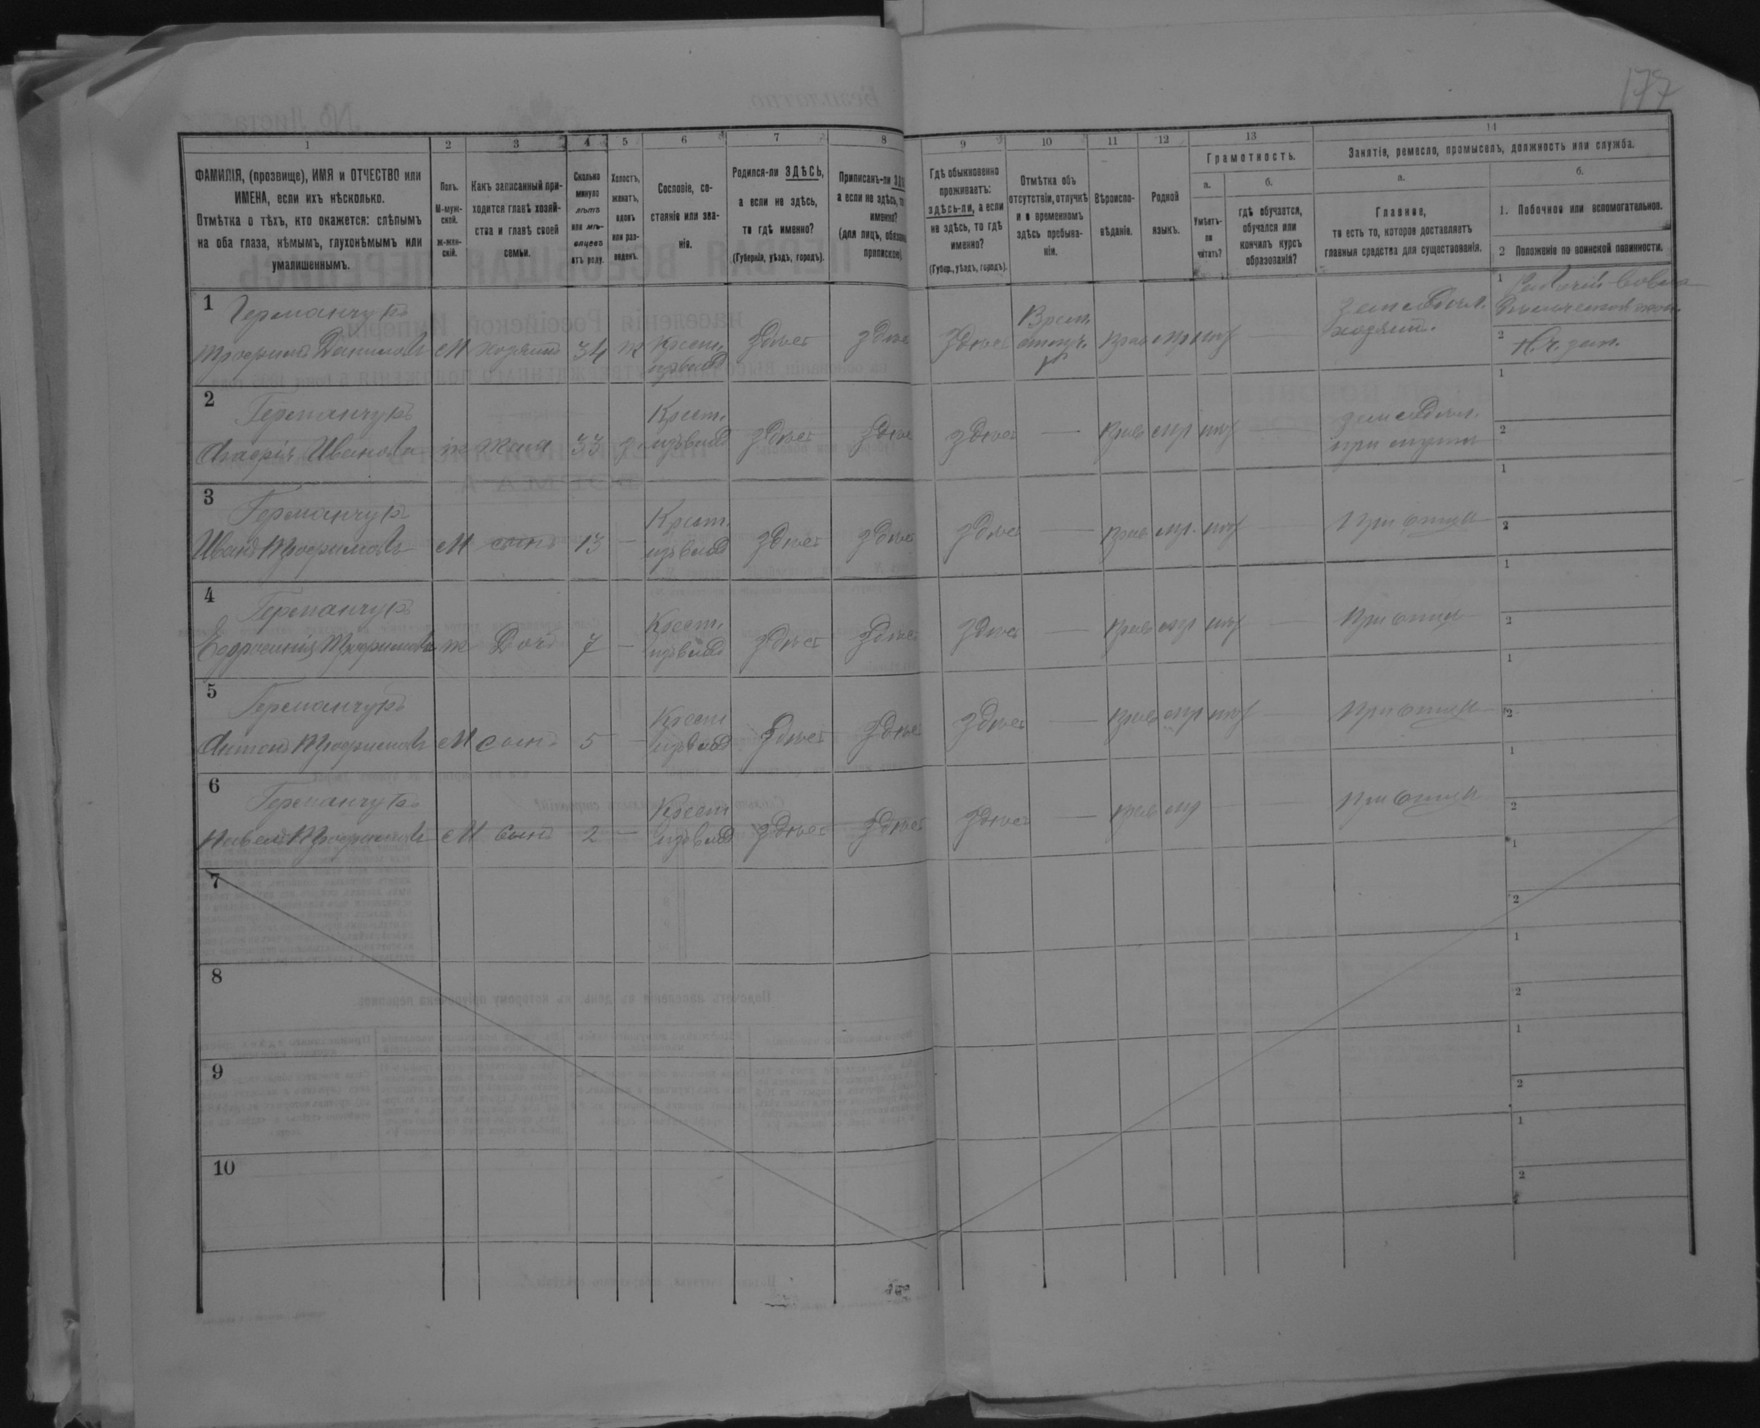 177
1 2 3 4 5 6 7 8 9 10 11 12 13 14
ФАМИЛІЯ, (прозвище), ИМЯ и ОТЧЕСТВО или
ИМЕНА, если ихъ нѣсколько.
Отмѣтка о тѣхъ, кто окажется: слѣпымъ
на оба глаза, нѣмымъ, глухонѣмымъ или
умалишеннымъ.
Полъ.
М-муж-
ской.
ж-жен-
скій.
Какъ записанный при-
ходится главѣ хозяй-
ства и главѣ своей
семьи.
Сколько
минуло
лѣтъ
или мѣ-
сяцевъ
отъ роду.
Холостъ,
женатъ,
вдовъ
или раз-
веденъ.
Сословіе, со-
стояніе или зва-
ніе.
Родился-ли ЗДѢСЬ,
а если не здѣсь,
то гдѣ именно?
(Губернія, уѣздъ, городъ).
Приписанъ-ли
а если не здѣсь,
именно?
(для лицъ,
Гдѣ обыкновенно
проживаетъ:
здѣсь-ли, а если
не здѣсь, то гдѣ
именно?
(Губер., уѣздъ, городъ).
Отмѣтка объ
отсутствіи, отлучкѣ
и о временномъ
здѣсь пребыва-
ніи.
Вѣроиспо-
вѣданіе.
Родной
языкъ.
Грамотность.
а.
Умѣетъ-
ли
читать?
б.
гдѣ обучается,
обучался или
кончилъ курсъ
образованія?
Занятіе, ремесло, промыселъ, должность или служба.
а.
Главное,
то есть то, которое доставляетъ
главныя средства для существованія.
б.
1. Побочное или вспомогательное.
2 Положеніе по воинской повинности.
1 Германчукъ
Трофимъ Даниловъ М хозяинъ 34 ж Крест. здѣсь здѣсь здѣсь Врем. отлуч. прав мр нѣт — земледѣл. хозяинъ
2 Германчукъ
Агафія Иванова ж жена 33 Крест. здѣсь здѣсь здѣсь — прав мр нѣт — земледѣл. при мужѣ
3 Германчукъ
Иванъ Трофимовъ М сынъ 13 — Крест. здѣсь здѣсь здѣсь — прав мр. нѣт — при отцѣ
4 Германчукъ
Ефросинія Трофимова ж Дочь 7 — Крест. здѣсь здѣсь здѣсь — прав мр нѣт — при отцѣ
5 Германчукъ
Антонъ Трофимовъ М сынъ 5 — Крест. здѣсь здѣсь здѣсь — прав мр нѣт — при отцѣ
6 Германчукъ
Павелъ Трофимовъ М сынъ 2 — Крест. здѣсь здѣсь здѣсь — прав мр — — при отцѣ
7
8
9
10